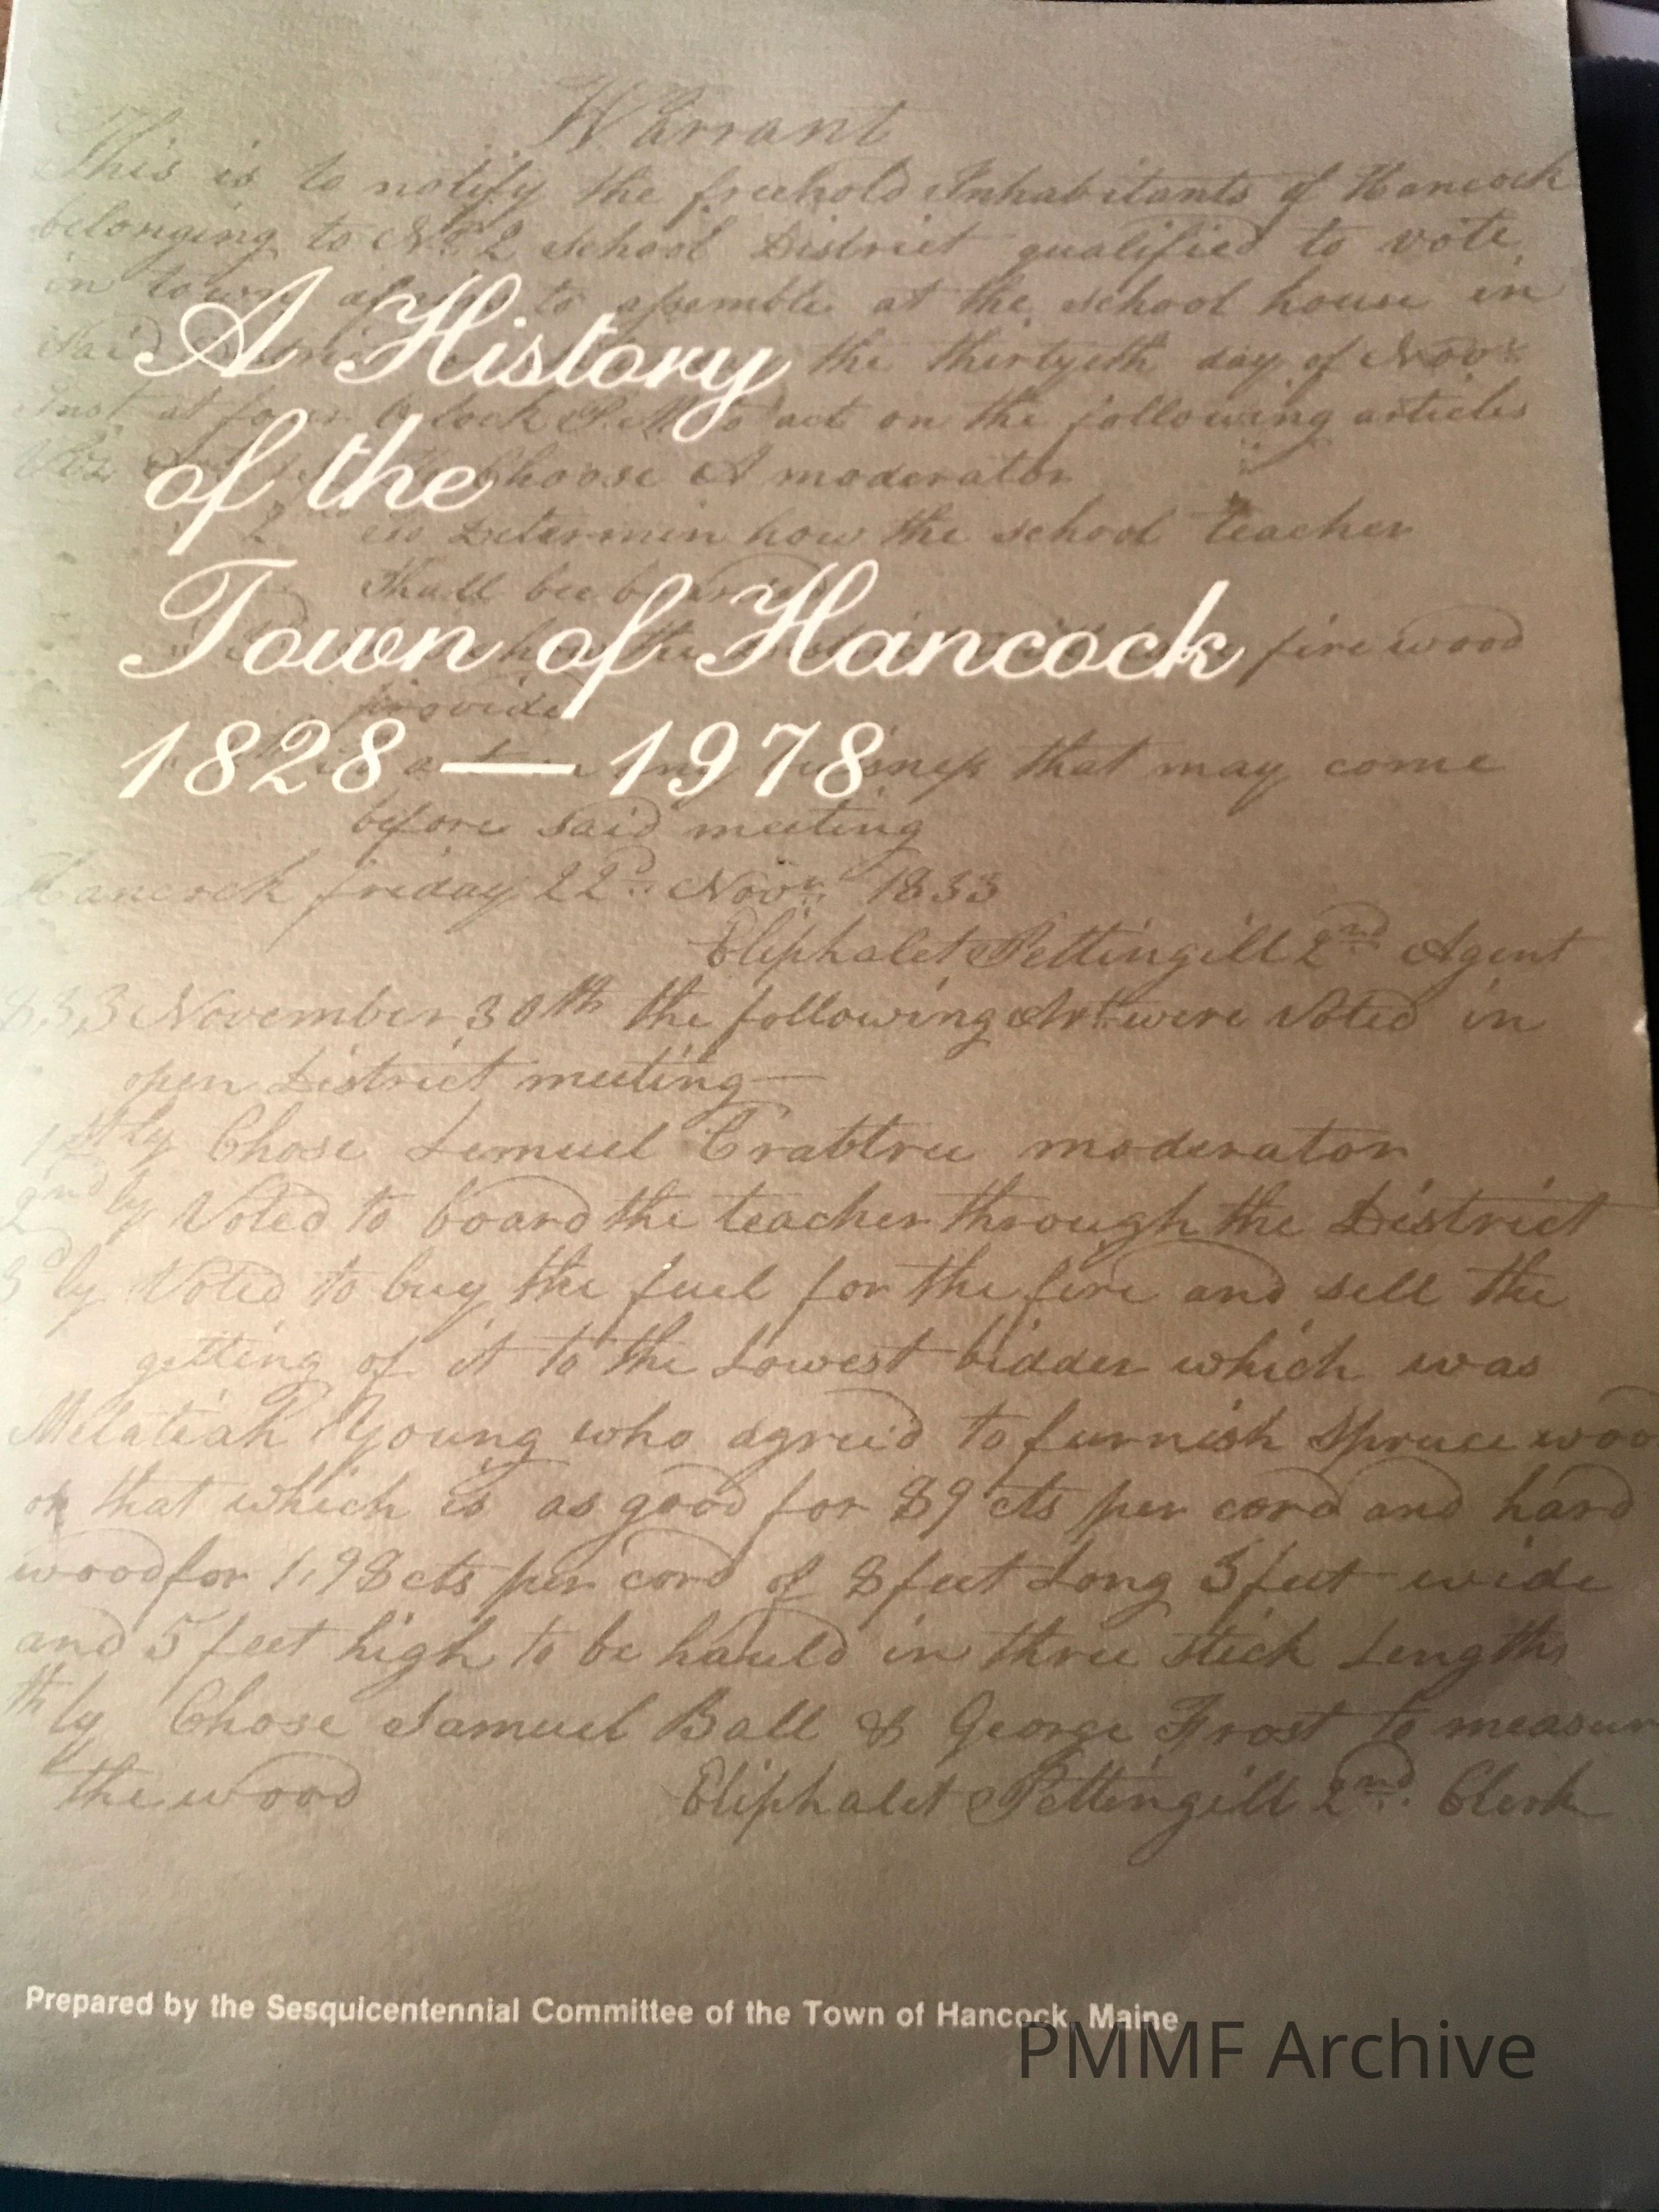 Warrant
This is to notify the freehold Inhabitants of Hancock
belonging to No 2 School District qualified to vote
in town to assemble at the school house in
Said the thirtyeth day of Novr
Inst at four Oclock P.M. to act on the following articles
Viz Choose A moderator
2nd to Determin how the school teacher
Shall bee
how the fire wood
provide
business that may come
before said meeting
Hancock friday 22d Novr 1833
Eliphalet Pettingill 2nd Agent
833 November 30th the following Art were Voted in
open District meeting—
1stly Chose Lemuel Crabtree moderator
2ndly Voted to board the teacher through the District
3dly Voted to buy the fuel for the fire and sell the
getting of it to the Lowest bidder which was
Melatiah Young who agreed to furnish Spruce woo
or that which is as good for 89 cts per cord and hard
wood for 1,98 cts per cord of 8 feet Long 3 feet wide
and 5 feet high to be hauld in three stick Lengths
thly Chose Samuel Ball & George Frost to measur
the wood Eliphalet Pettingill 2nd Clerk
A History
of the
Town of Hancock
1828 — 1978
Prepared by the Sesquicentennial Committee of the Town of Hancock, Maine
PMMF Archive